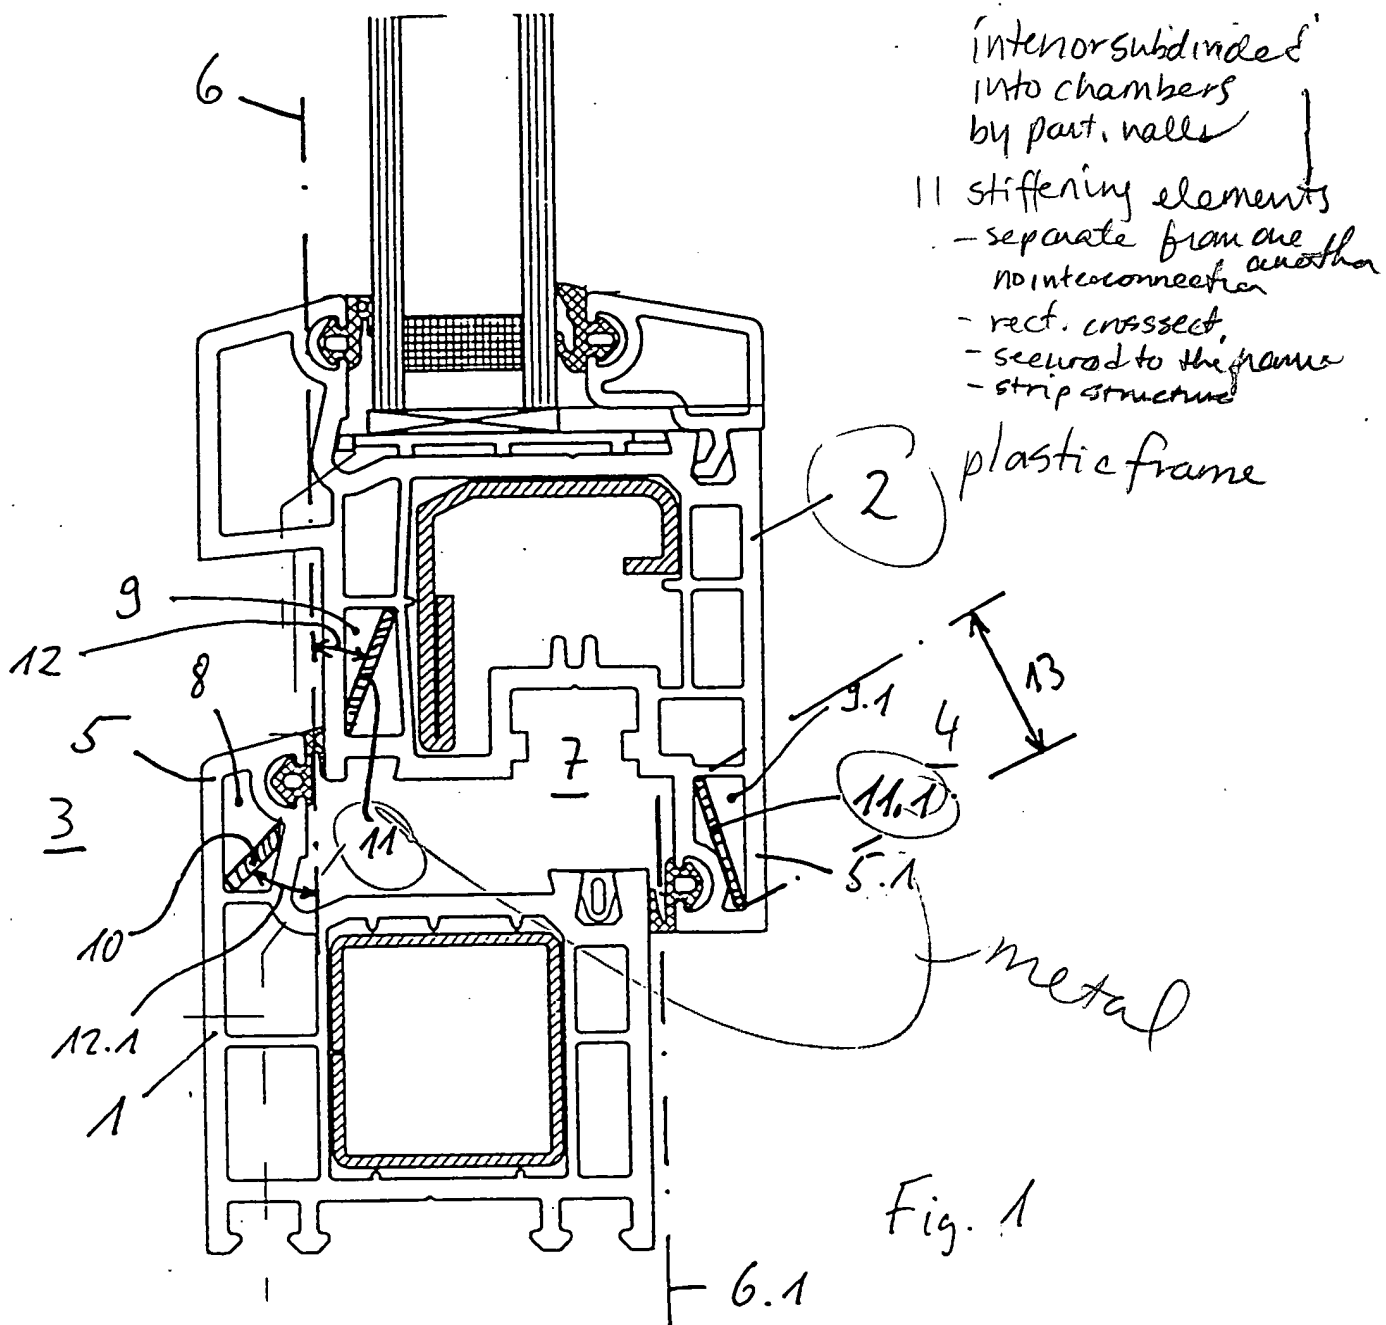 interior subdivided
into chambers
by part. walls
11 stiffening elements
- separate from one another
no interconnection
- rect. crosssect.
- secured to the frame
- strip structure
plastic frame
6
2
9
12
8
5
3
13
9.1
4
7
11
11.1
5.1
10
12.1
1
metal
Fig. 1
6.1